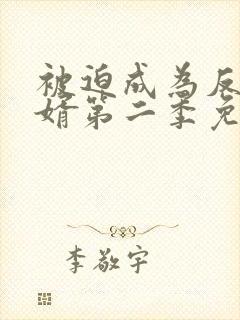 被迫成为反
婿第二季免
李敬宇